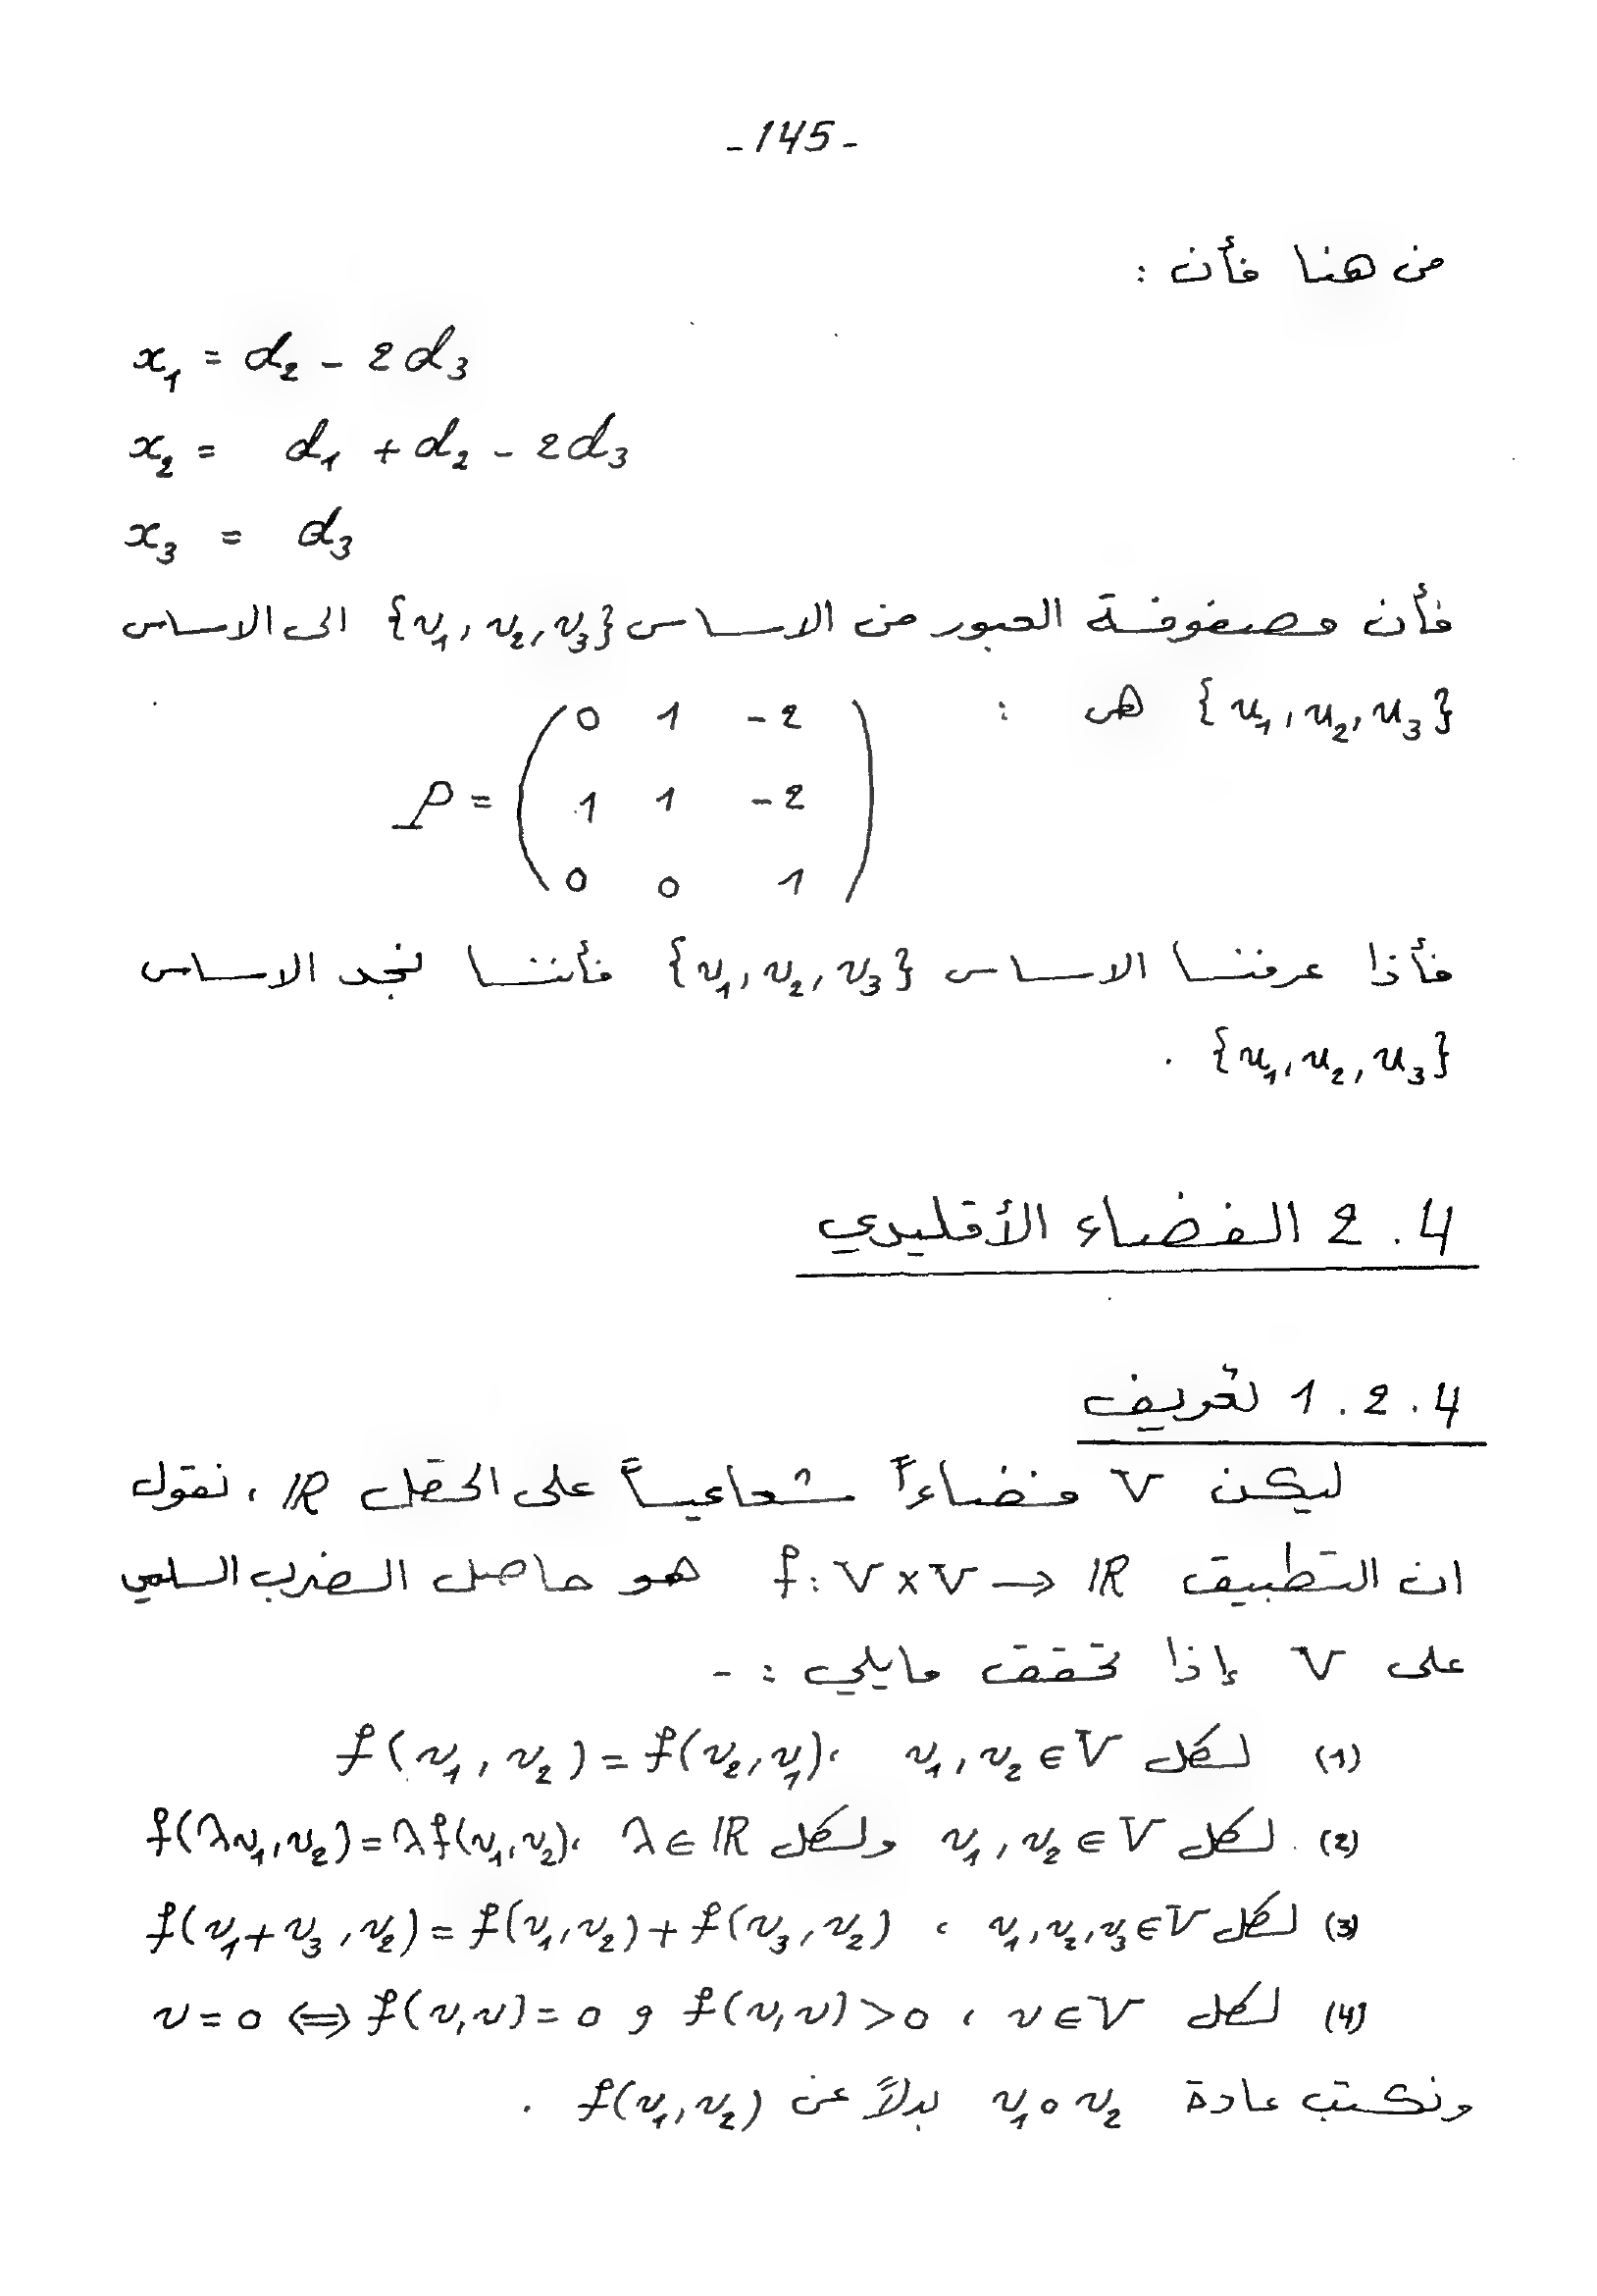 - 145 -
من هنا فأن :
x₁ = α₂ - 2α₃
x₂ = α₁ + α₂ - 2α₃
x₃ = α₃
فأن مصفوفة العبور من الاساس {v₁, v₂, v₃} الى الاساس
{u₁, u₂, u₃} هى :
0 1 -2
P = 1 1 -2
0 0 1
فأذا عرفنا الاساس {v₁, v₂, v₃} فأننا نجد الاساس
{u₁, u₂, u₃} .
2.4 الفضاء الأقليدي
1.2.4 تعريف
ليكن V فضاءاً شعاعياً على الحقل ℝ ، نقول
ان التطبيق f : V × V → ℝ هو حاصل الضرب السلمي
على V إذا تحقق مايلي : -
(1) لكل v₁, v₂ ∈ V ، f(v₁, v₂) = f(v₂, v₁)
(2) لكل v₁, v₂ ∈ V ولكل λ ∈ ℝ ، f(λv₁, v₂) = λf(v₁, v₂)
(3) لكل v₁, v₂, v₃ ∈ V ، f(v₁ + v₃, v₂) = f(v₁, v₂) + f(v₃, v₂)
(4) لكل v ∈ V ، f(v, v) > 0 و v = 0 ⟺ f(v, v) = 0
ونكتب عادة v₁ ∘ v₂ بدلاً عن f(v₁, v₂) .